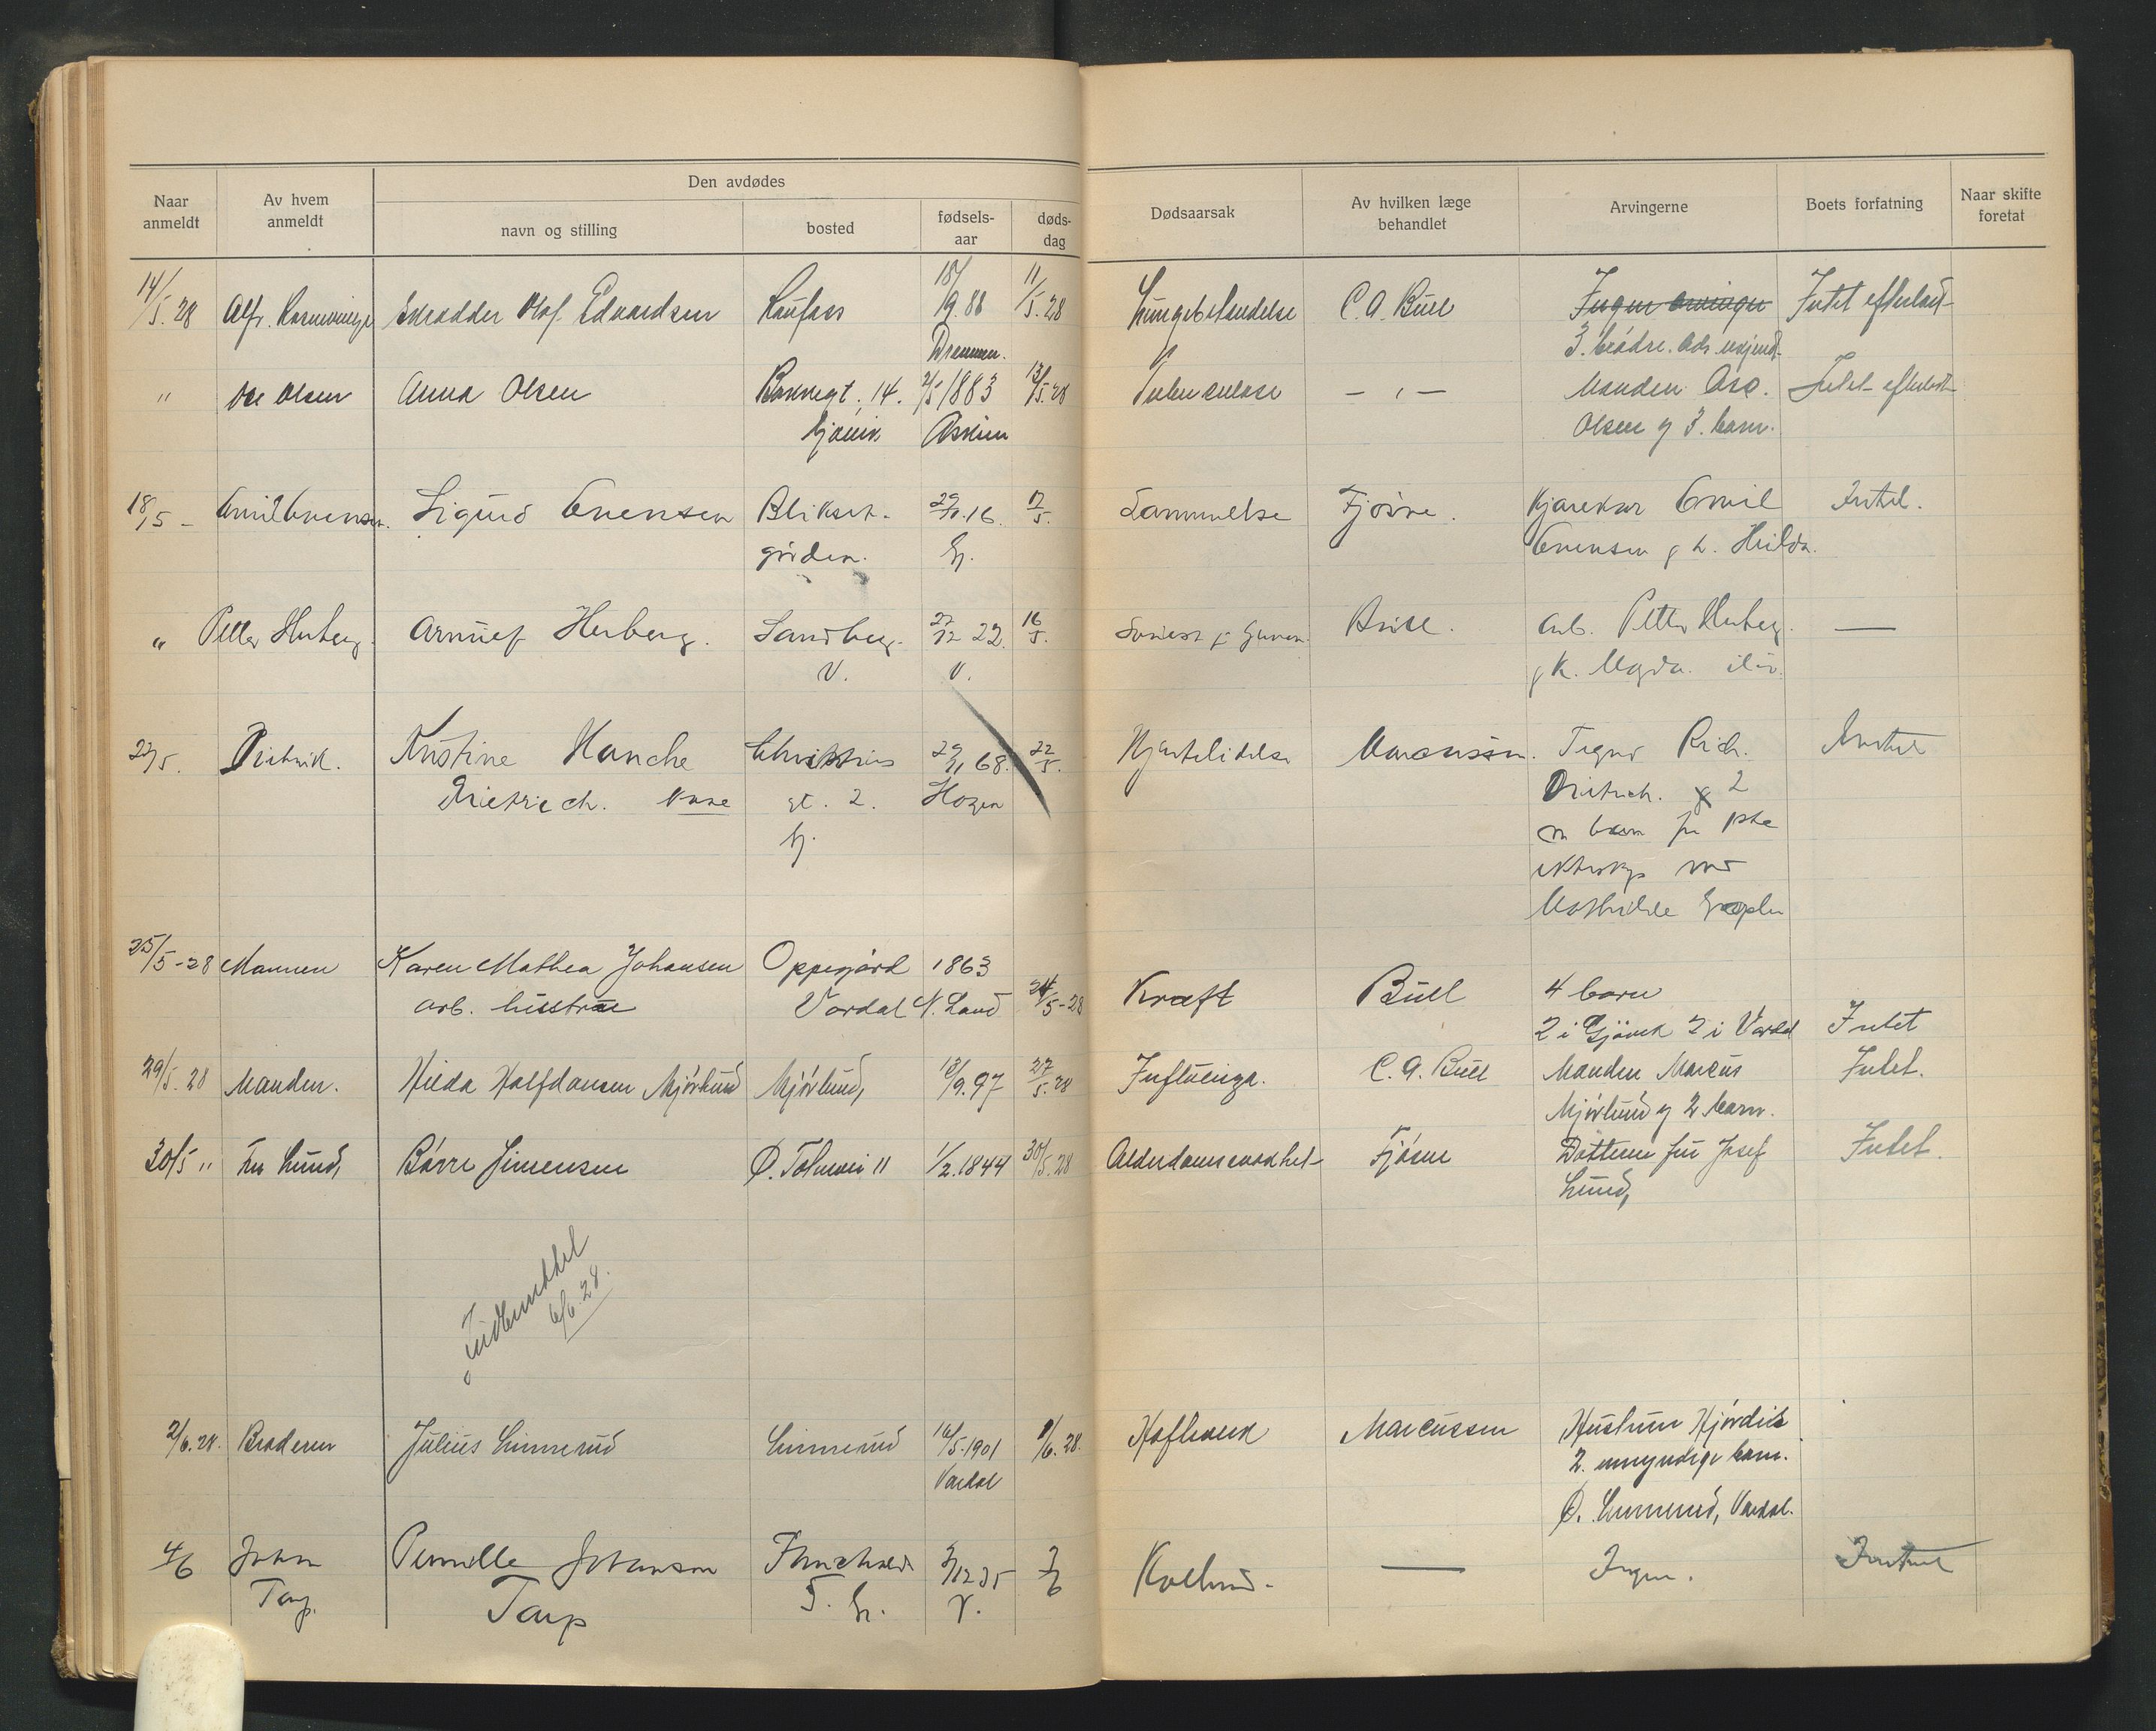 Naar anmeldt
Av hvem anmeldt
Den avdødes
navn og stilling
bosted
fødsels-aar
døds-dag
Dødsaarsak
Av hvilken læge behandlet
Arvingerne
Boets forfatning
Naar skifte foretat
14/5.28 Alfr. Skrædder Olaf Edvardsen Raufoss 18/9.88 11/5.28 Lungebetændelse C.A. Bull Ingen arvinger Intet efterladt
Drammen. 3 brødre. Ads. ukjendt
" Olsen Anna Olsen 14. 2/5 1883 13/5.28 Tuberculose — " — Manden Olsen og 3 barn. Intet efterladt
Gjøvik Askim
18/5 - Emil Evensen. Sigurd Evensen Blikset- 29/11.16. 17/5. Lammelse Fjøsne. Kjørekar Emil Evensen g h. Hilda. Intet.
gården. Gj.
" Petter Herberg. Arnulf Herberg. Sandberg. 27/12 22. 16/5. arb. Petter Herberg. —
V. V. g K. Magda
22/5. Dietrich. Kristine Hanche Christians 29/11 68. 22/5. Hjertelidelse Marcussen. Tegner Rich. Intet
Dietrich. gt. 2. Dietrich. 2
Gj. barn fra 1ste
ekteskap med
Mathilde
25/5-28 Mannen Karen Mathea Johansen Oppegård 1863 24/5-28 Kræft Bull 4 barn
arb. hustru Vardal N. Land 2 i Gjøvik 2 i Vardal Intet
29/5.28 Manden. Hilda Halfdansen Mjørlund Mjørlund, 12/9.97 27/5.28 Influenza. C.A. Bull Manden Marcus Intet.
Mjørlund og 2 barn.
30/5 " Fru Lund, Børre Simensen Ø. Totenvei 11 1/2.1844 30/5.28 Alderdomssvakhet Fjøsne Datteren fru Josef Intet.
Lund,
Indberettet
6/6.28.
2/6.28. Broderen Julius Linnerud Linnerud 16/5-1901 1/6.28. Marcussen Hustruen Hjørdis
Vardal 2 umyndige barn.
Ø. Linnerud, Vardal.
4/6 John Pernille Johanson 3/12 35 2/6 — Ingen. Intet
Tarp. Tarp 5. Gj. V.